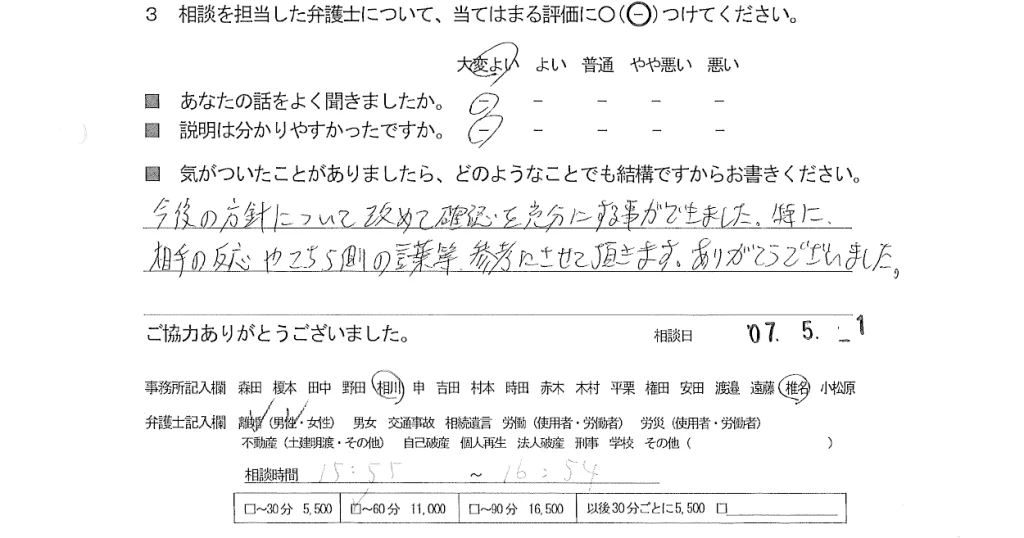 3 相談を担当した弁護士について、当てはまる評価に○(⊖)つけてください。
大変よい よい 普通 やや悪い 悪い
■ あなたの話をよく聞きましたか。 － － － － －
■ 説明は分かりやすかったですか。 － － － － －
■ 気がついたことがありましたら、どのようなことでも結構ですからお書きください。
今後の方針について改めて確認を充分にする事ができました。特に、
相手の反応やこちら側の言葉等、参考にさせて頂きます。ありがとうございました。
ご協力ありがとうございました。 相談日 '07. 5. -1
事務所記入欄 森田 榎本 田中 野田 相川 申 吉田 村本 時田 赤木 木村 平栗 権田 安田 渡邉 遠藤 椎名 小松原
弁護士記入欄 離婚（男性・女性） 男女 交通事故 相続遺言 労働（使用者・労働者） 労災（使用者・労働者）
不動産（土建明渡・その他） 自己破産 個人再生 法人破産 刑事 学校 その他（ ）
相談時間 15:55 ～ 16:54
□～30分 5,500 □～60分 11,000 □～90分 16,500 以後30分ごとに5,500 □